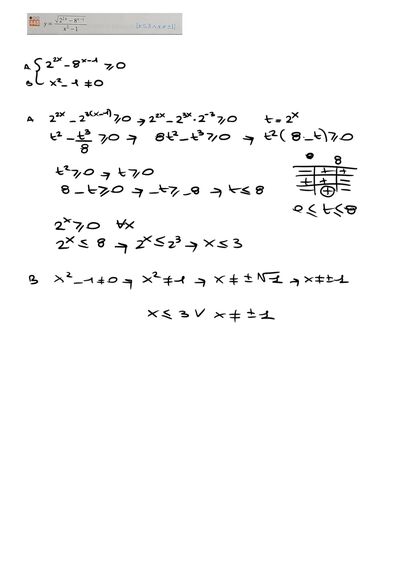 y = √(2^{2x} − 8^{x−1}) / (x² − 1) [x ≤ 3 ∧ x ≠ ±1]
A { 2^{2x} − 8^{x−1} ≥ 0
B { x² − 1 ≠ 0
A 2^{2x} − 2^{3(x−1)} ≥ 0 → 2^{2x} − 2^{3x} · 2^{−3} ≥ 0 t = 2^x
t² − t³/8 ≥ 0 → 8t² − t³ ≥ 0 → t² (8 − t) ≥ 0
t² ≥ 0 → t ≥ 0
8 − t ≥ 0 → −t ≥ −8 → t ≤ 8
0 8
0 ≤ t ≤ 8
2^x ≥ 0 ∀x
2^x ≤ 8 → 2^x ≤ 2³ → x ≤ 3
B x² − 1 ≠ 0 → x² ≠ 1 → x ≠ ±√1 → x ≠ ±1
x ≤ 3 ∨ x ≠ ±1